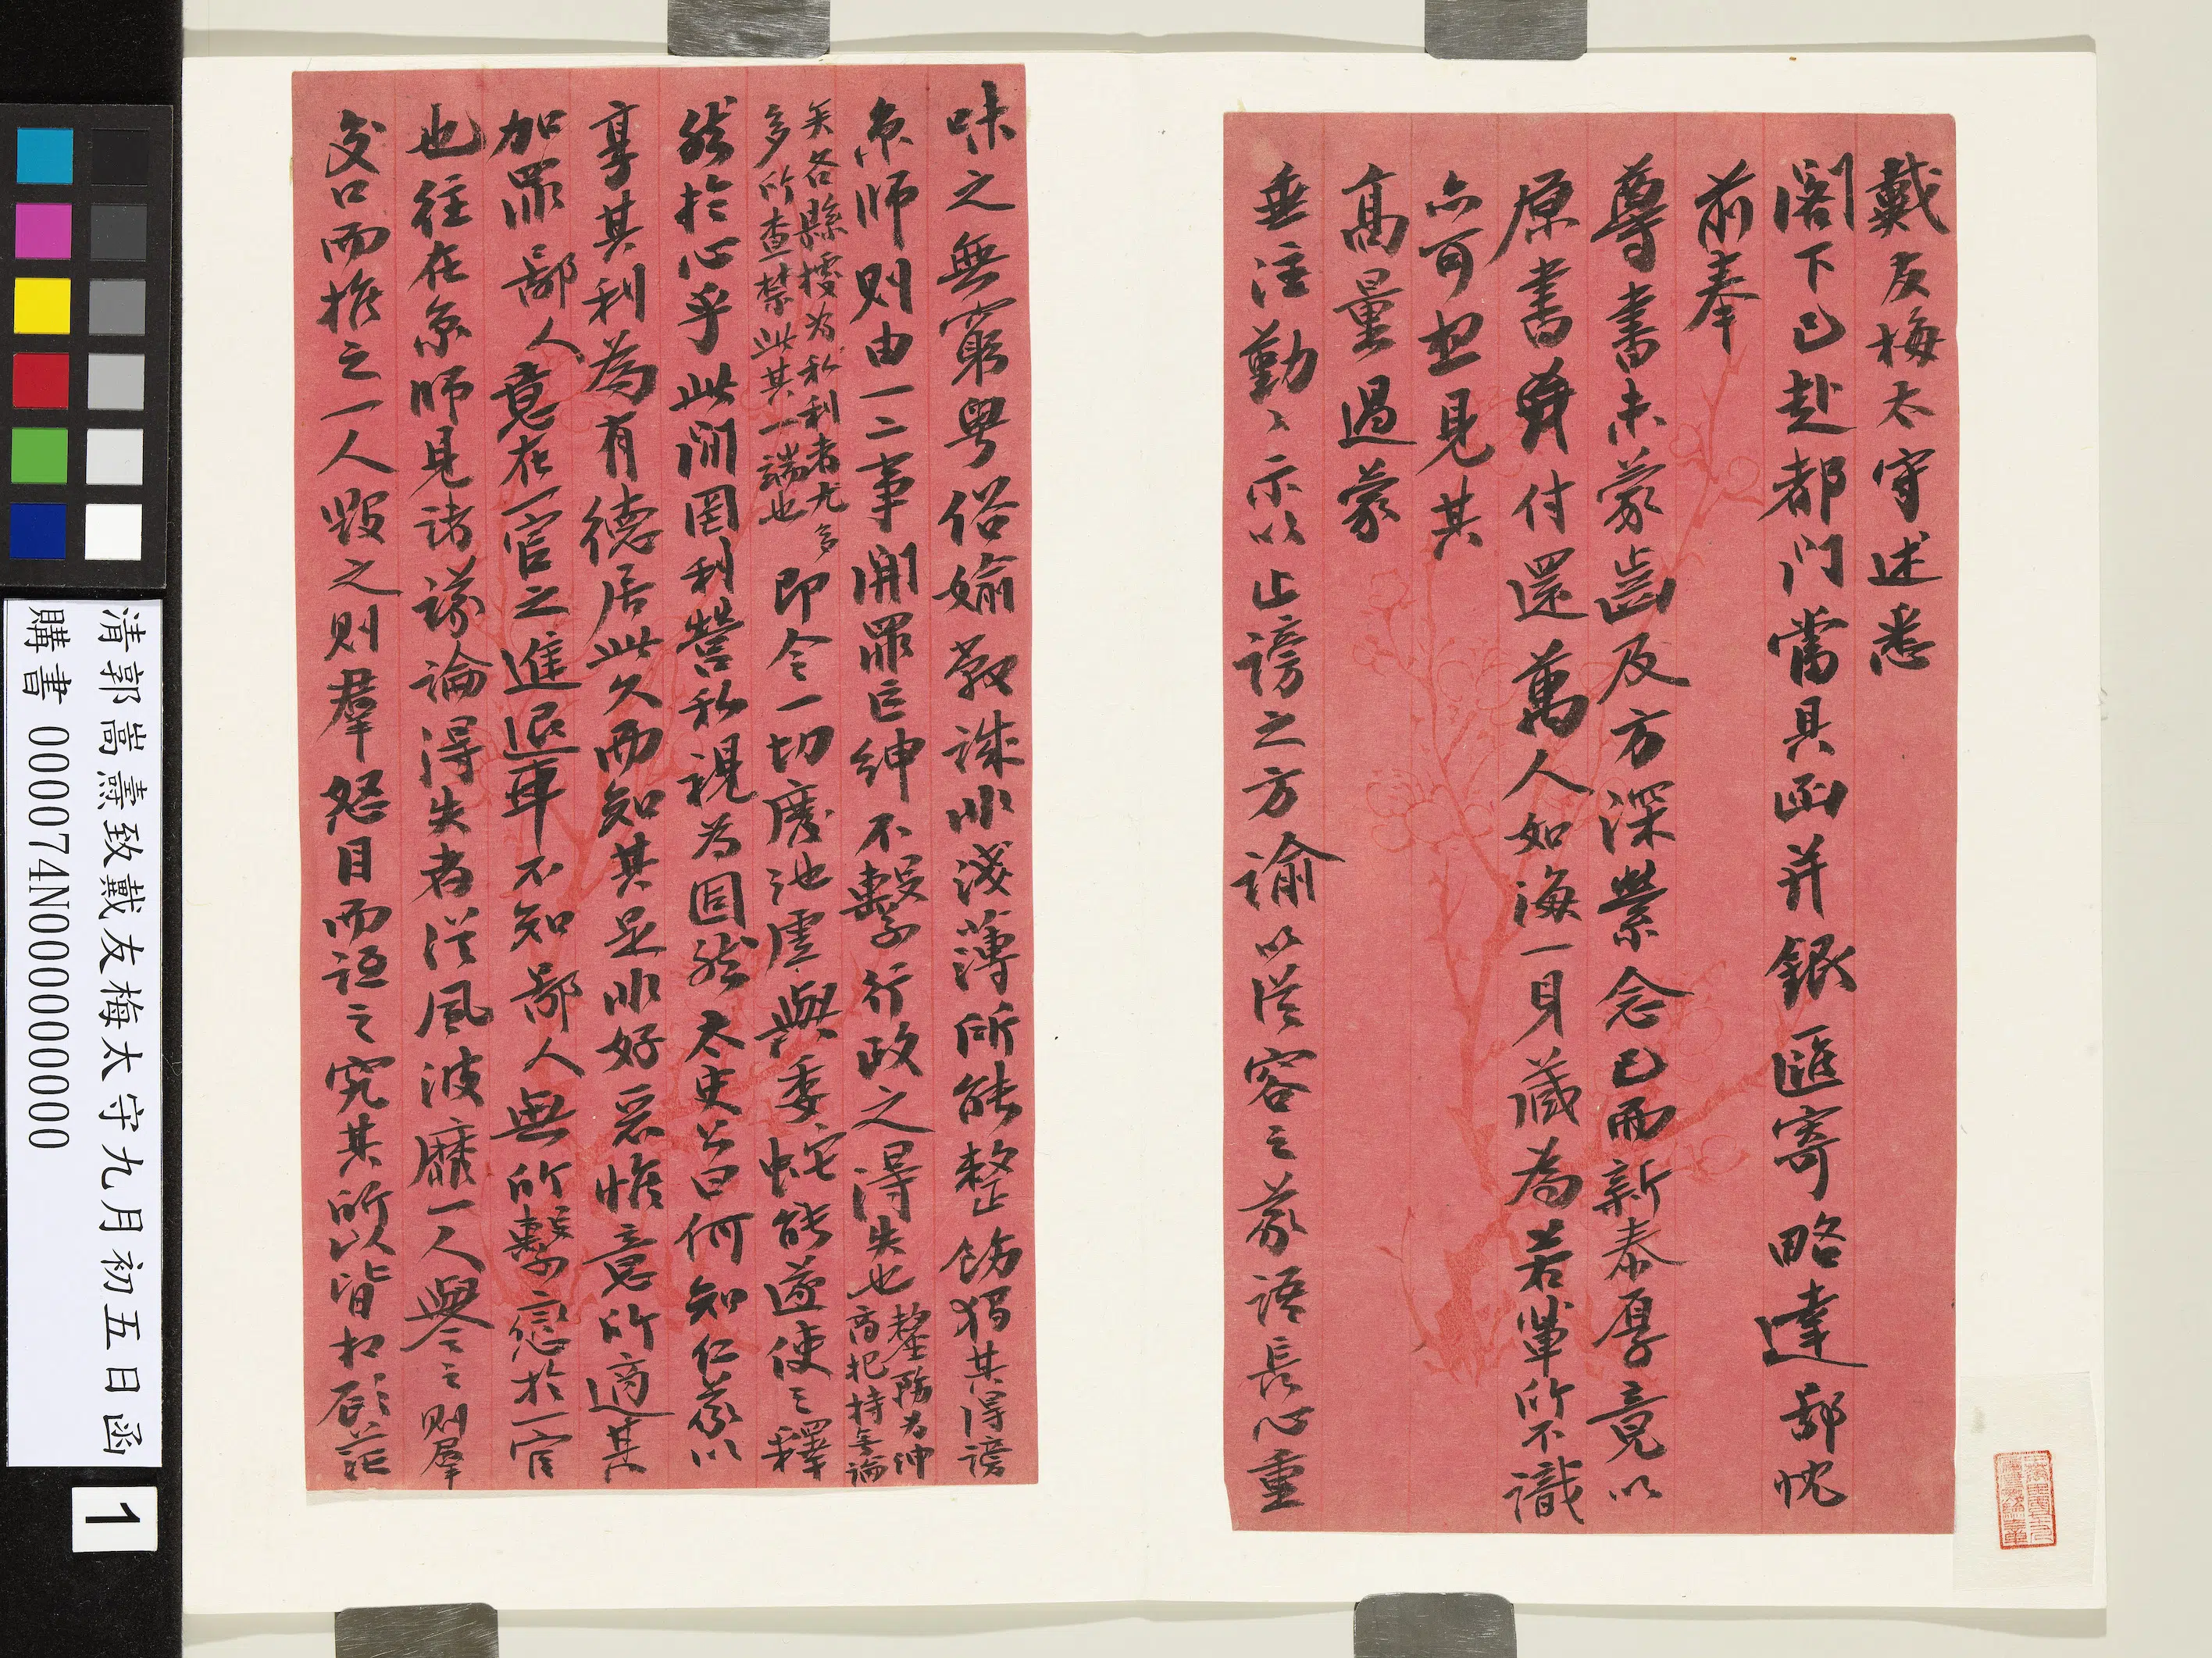 戴友梅太守述悉
閣下已赴都門當具函并銀匯寄略達鄙忱
前奉
尊書未蒙齒及方深縈念已而新泰厚竟以
原書賫付還萬人如海一身藏為若輩所不識
亦可想見其
高量過蒙
垂注勤〻示以止謗之方諭以從容之義語長心重
味之無窮粵俗媮敝誠非淺薄所能整飭獨其得謗
京師則由一二事開罪巨紳不繫行政之得失也
釐務為紳
商把持無論
矣各縣擾為私利者尤多
多所查禁此其一端也
即令一切度池虛與委蛇能遂使之釋
然於心乎此間罔利營私視為固然太史公曰何知仁義以
享其利為有德居此久而知其是非好惡惟意所適其
加罪鄙人意在一官之進退耳不知鄙人無所繫戀於一官
也往在京師見諸議論得失者從風波靡一人譽之則群
交口而推之一人毀之則羣怒目而詆之究其所以皆相顧茫
清郭嵩燾致戴友梅太守九月初五日函
購書 000074N000000000
1